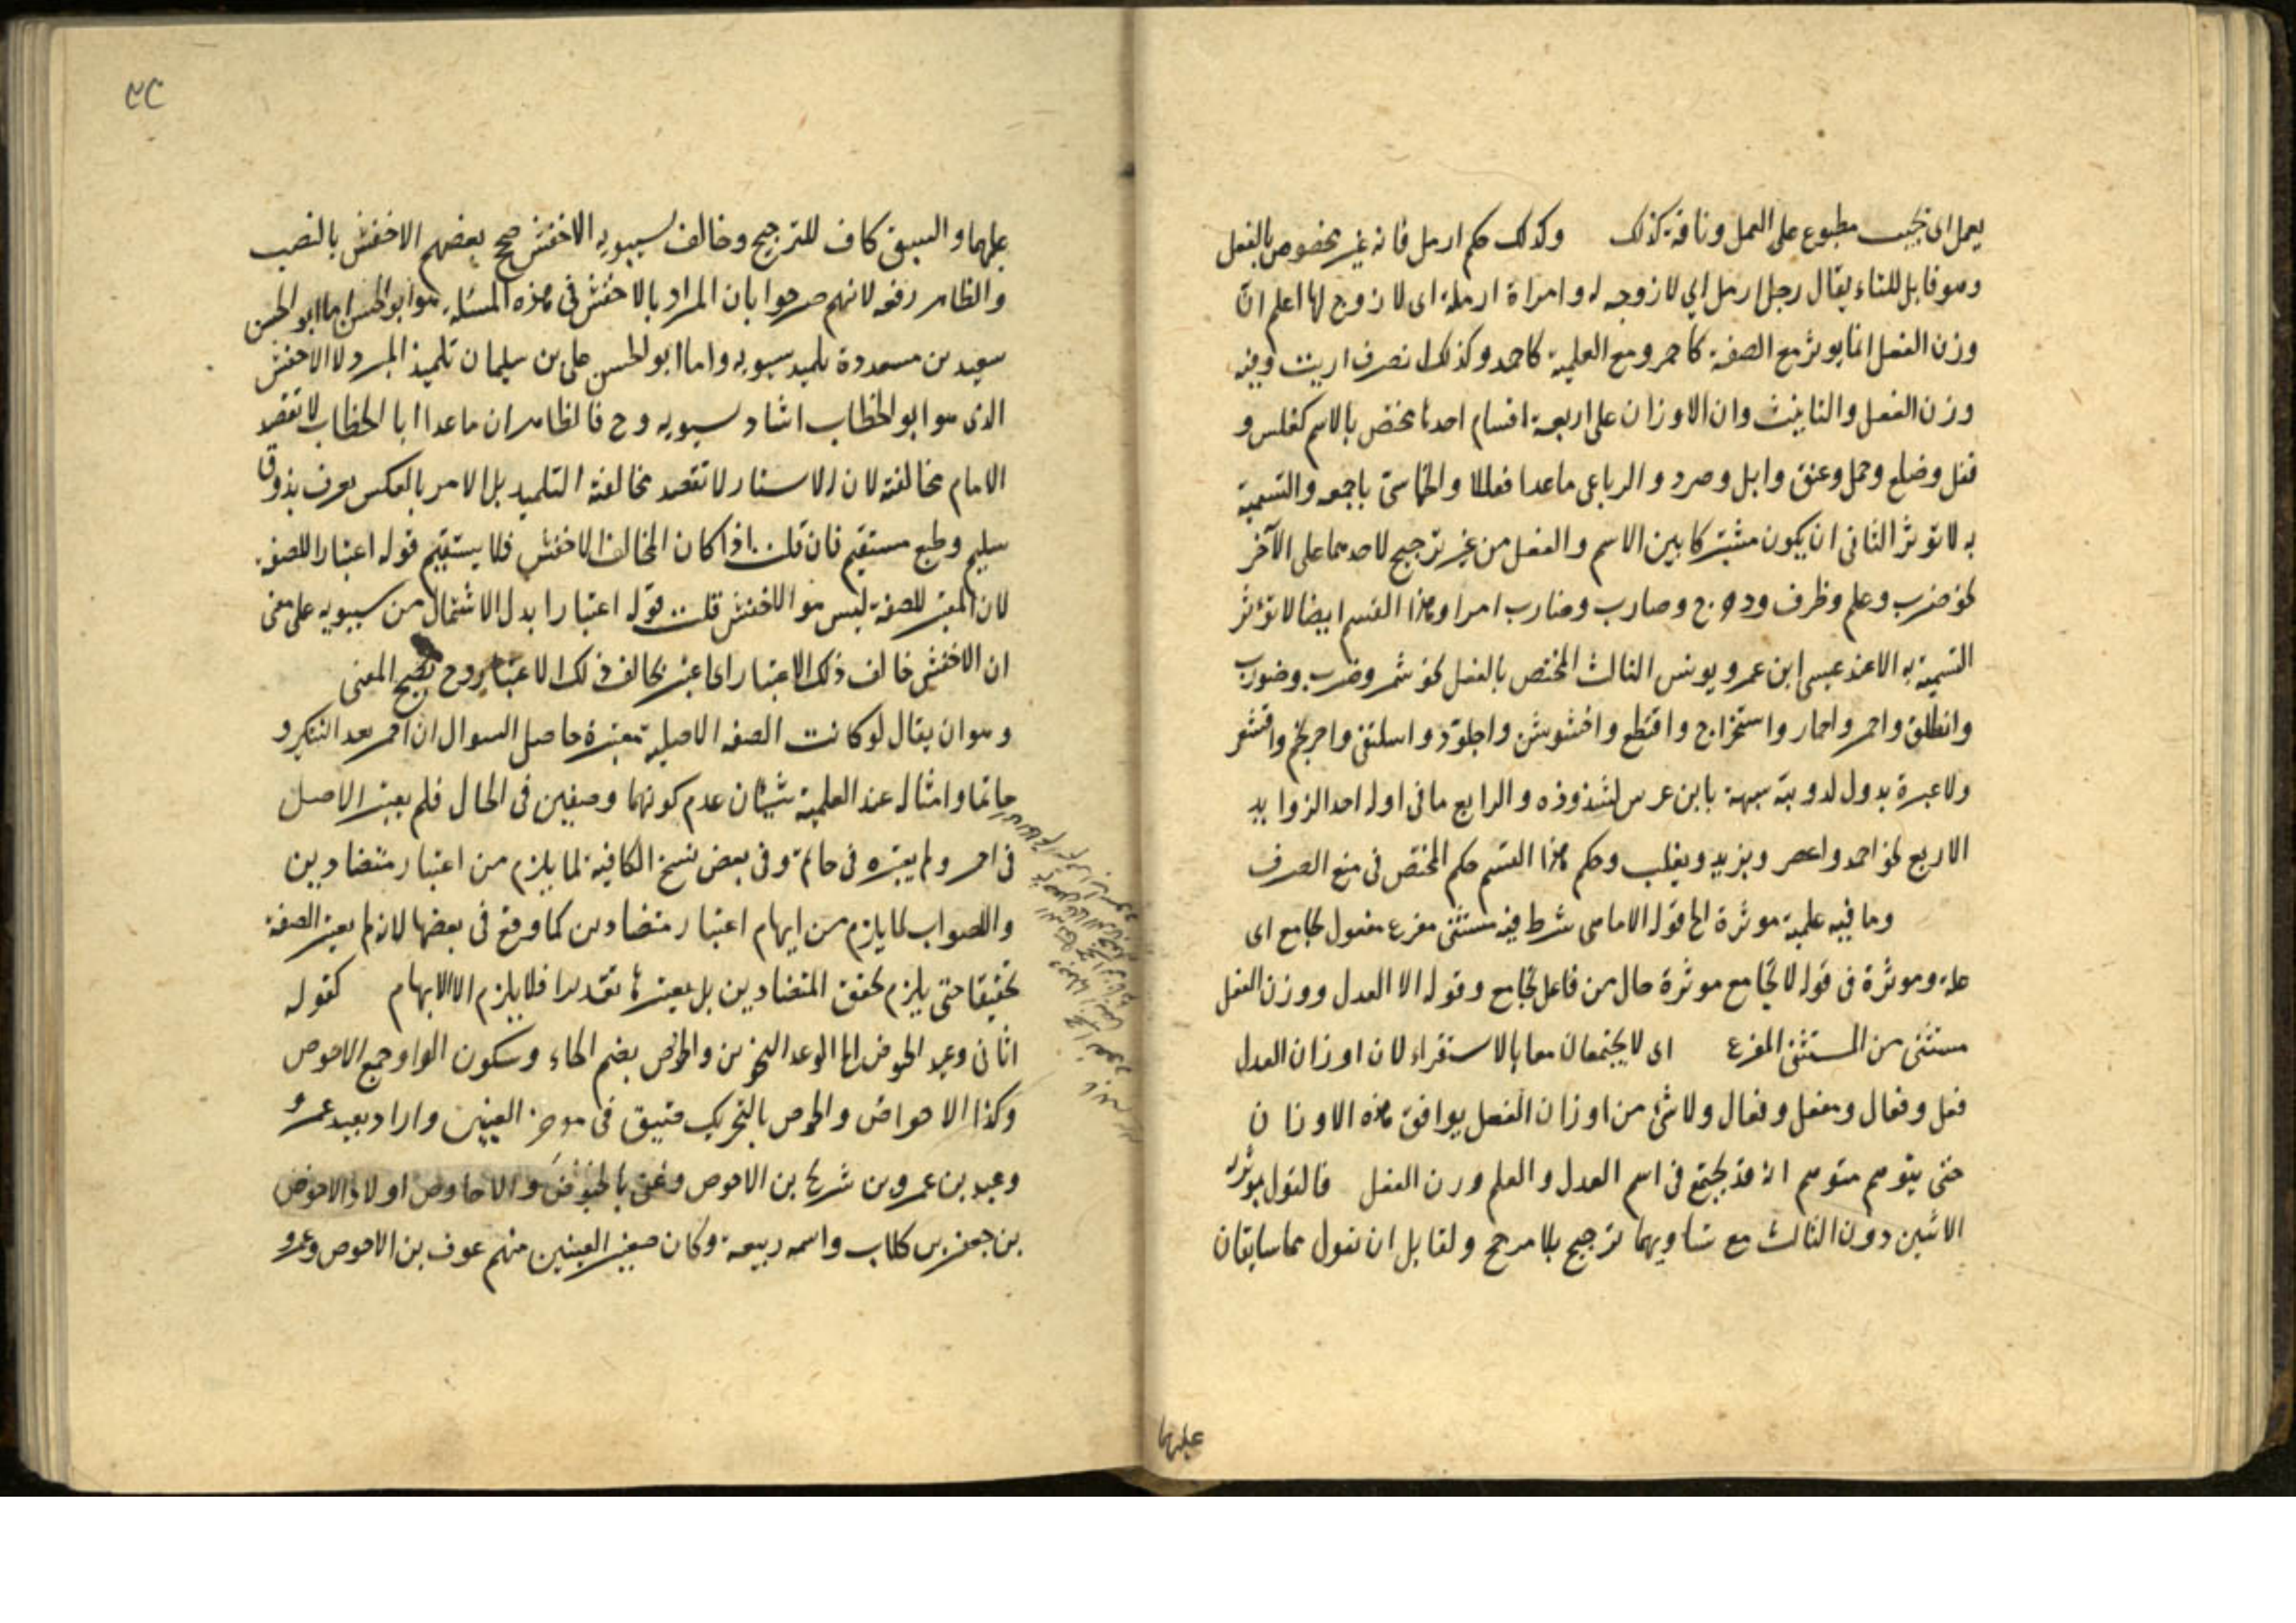 يعمل اى نجيب مطبوع على العمل وناقة كذلك وكذلك حكم ارمل فانه غير مخصوص بالفعل
وهو قابل للتاء يقال رجل ارمل اى لا زوجه له وامراة ارملة اى لا زوج لها اعلم ان
وزن الفعل انما يوثر مع الصفة كاحمر ومع العلمية كاحمد وكذلك نصرف اربت وفيه
وزن الفعل والتانيث وان الاوزان على اربعة اقسام احدها مختص بالاسم كفلس و
قفل وضلع وحمل وعنق وابل وصرد والرباعى ماعدا فعللا والخماسى باجمعه والتسمية
به لا تؤثر الثانى ان يكون مشتركا بين الاسم والفعل من غير ترجيح لاحدهما على الآخر
نحو ضرب وعلم وظرف ودحرج وضارب وضارب امرا وهذا القسم ايضا لا تؤثر
التسمية به الا عند عيسى ابن عمر ويونس الثالث المختص بالفعل نحو شمر وضرب وضورب
وانطلق واحمر واحمار واستخراج واقتطع واخشوشن واجلوذ واسلنقى واحرنجم واقشعر
ولا عبرة بدول لدويبة شبيهة بابن عرس لشذوذه والرابع ما فى اوله احد الزوايد
الاربع نحو احمد واعصر ويزيد ويغلب وحكم هذا القسم حكم المختص فى منع الصرف
وما فيه علمية موثرة الخ قوله الا ماهى شرط فيه مستثنى مفرغ مفعول تجامع اى
علة وموثرة فى قوله لا تجامع موثرة حال من فاعل تجامع وقوله الا العدل ووزن الفعل
مستثنى من المستثنى المفرغ اى لا يجتمعان معا بالاستقراء لان اوزان العدل
فعل وفعال ومفعل وفعال ولا شئ من اوزان الفعل يوافق هذه الاوزان
حتى يتوهم متوهم انه قد يجتمع فى اسم العدل والعلم ووزن الفعل فالقول بموثرية
الاثنين دون الثالث مع تساويهما ترجيح بلا مرجح ولقايل ان نقول هما سابقان
عليهما
٣٤
عليهما والسبق كاف للترجيح وخالف سيبويه الاخفش صحح بعضهم الاخفش بالنصب
والظاهر رفعه لانهم صرحوا بان المراد بالاخفش فى هذه المسئلة هو ابو الحسن اما ابو الحسن
سعيد بن مسعدة تلميذ سيبويه واما ابو الحسن على بن سليمان تلميذ المبرد لا الاخفش
الذى هو ابو الخطاب استاد سيبويه وح فالظاهر ان ماعدا ابا الخطاب لا تقصد
الامام مخالفته لان الاستاد لا تقصد مخالفة التلميذ بل الامر بالعكس يعرف بذوق
سليم وطبع مستقيم فان قلت اذا كان المخالف الاخفش فلا يستقيم قوله اعتبارا للصفة
لان المعتبر للصفة ليس هو الاخفش قلت قوله اعتبارا بدل الاشتمال من سيبويه على معنى
ان الاخفش خالف ذلك الاعتبار اى اعتبر خالف ذلك الاعتبار وح يصح المعنى
وهو ان يقال لو كانت الصفه الاصلية معتبرة حاصل السوال ان احمر بعد التنكير و
حاتما وامثاله عند العلمية سيان عدم كونهما وصفين فى الحال فلم يعتبر الاصل
فى احمر ولم يعتبره فى حاتم وفى بعض نسخ الكافية لما يلزم من اعتبار متضادين
والصواب لما يلزم من ايهام اعتبار متضادين كما وقع فى بعضها لانه لم يعتبر الصفة
تحقيقا حتى يلزم تحقق المتضادين بل يعتبرها تقديرا فلا يلزم الا الابهام كقوله
اتانى وعيد الحوص الخ الوعد التخويف والحوص بضم الحاء وسكون الواو جمع الاحوص
وكذا الاحواض والحوص بالتحريك ضيق فى موخر العينين واراد بعبد عمرو
وعبد بن عمرو بن شريح بن الاحوص وعنى بالحوص والاحاوص اولاد الاحوص
بن جعفر بن كلاب واسمه ربيعة وكان صغير العينين منهم عوف بن الاحوص وعمرو